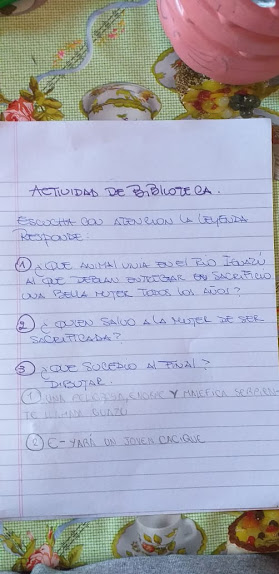 ACTIVIDAD DE BIBLIOTECA.
ESCUCHA CON ATENCION LA LEYENDA
RESPONDE:
① ¿QUE ANIMAL VIVIA EN EL RIO IGUAZU
AL QUE DEBIAN ENTREGAR EN SACRIFICIO
UNA BELLA MUJER TODOS LOS AÑOS?
② ¿QUIEN SALVO A LA MUJER DE SER
SACRIFICADA?
③ ¿QUE SUCEDIO AL FINAL?
DIBUJAR.
① UNA PELIGROSA, ENORME Y MALEFICA SERPIEN-
TE LLAMADA GUAZU
② C-YARÁ UN JOVEN CACIQUE